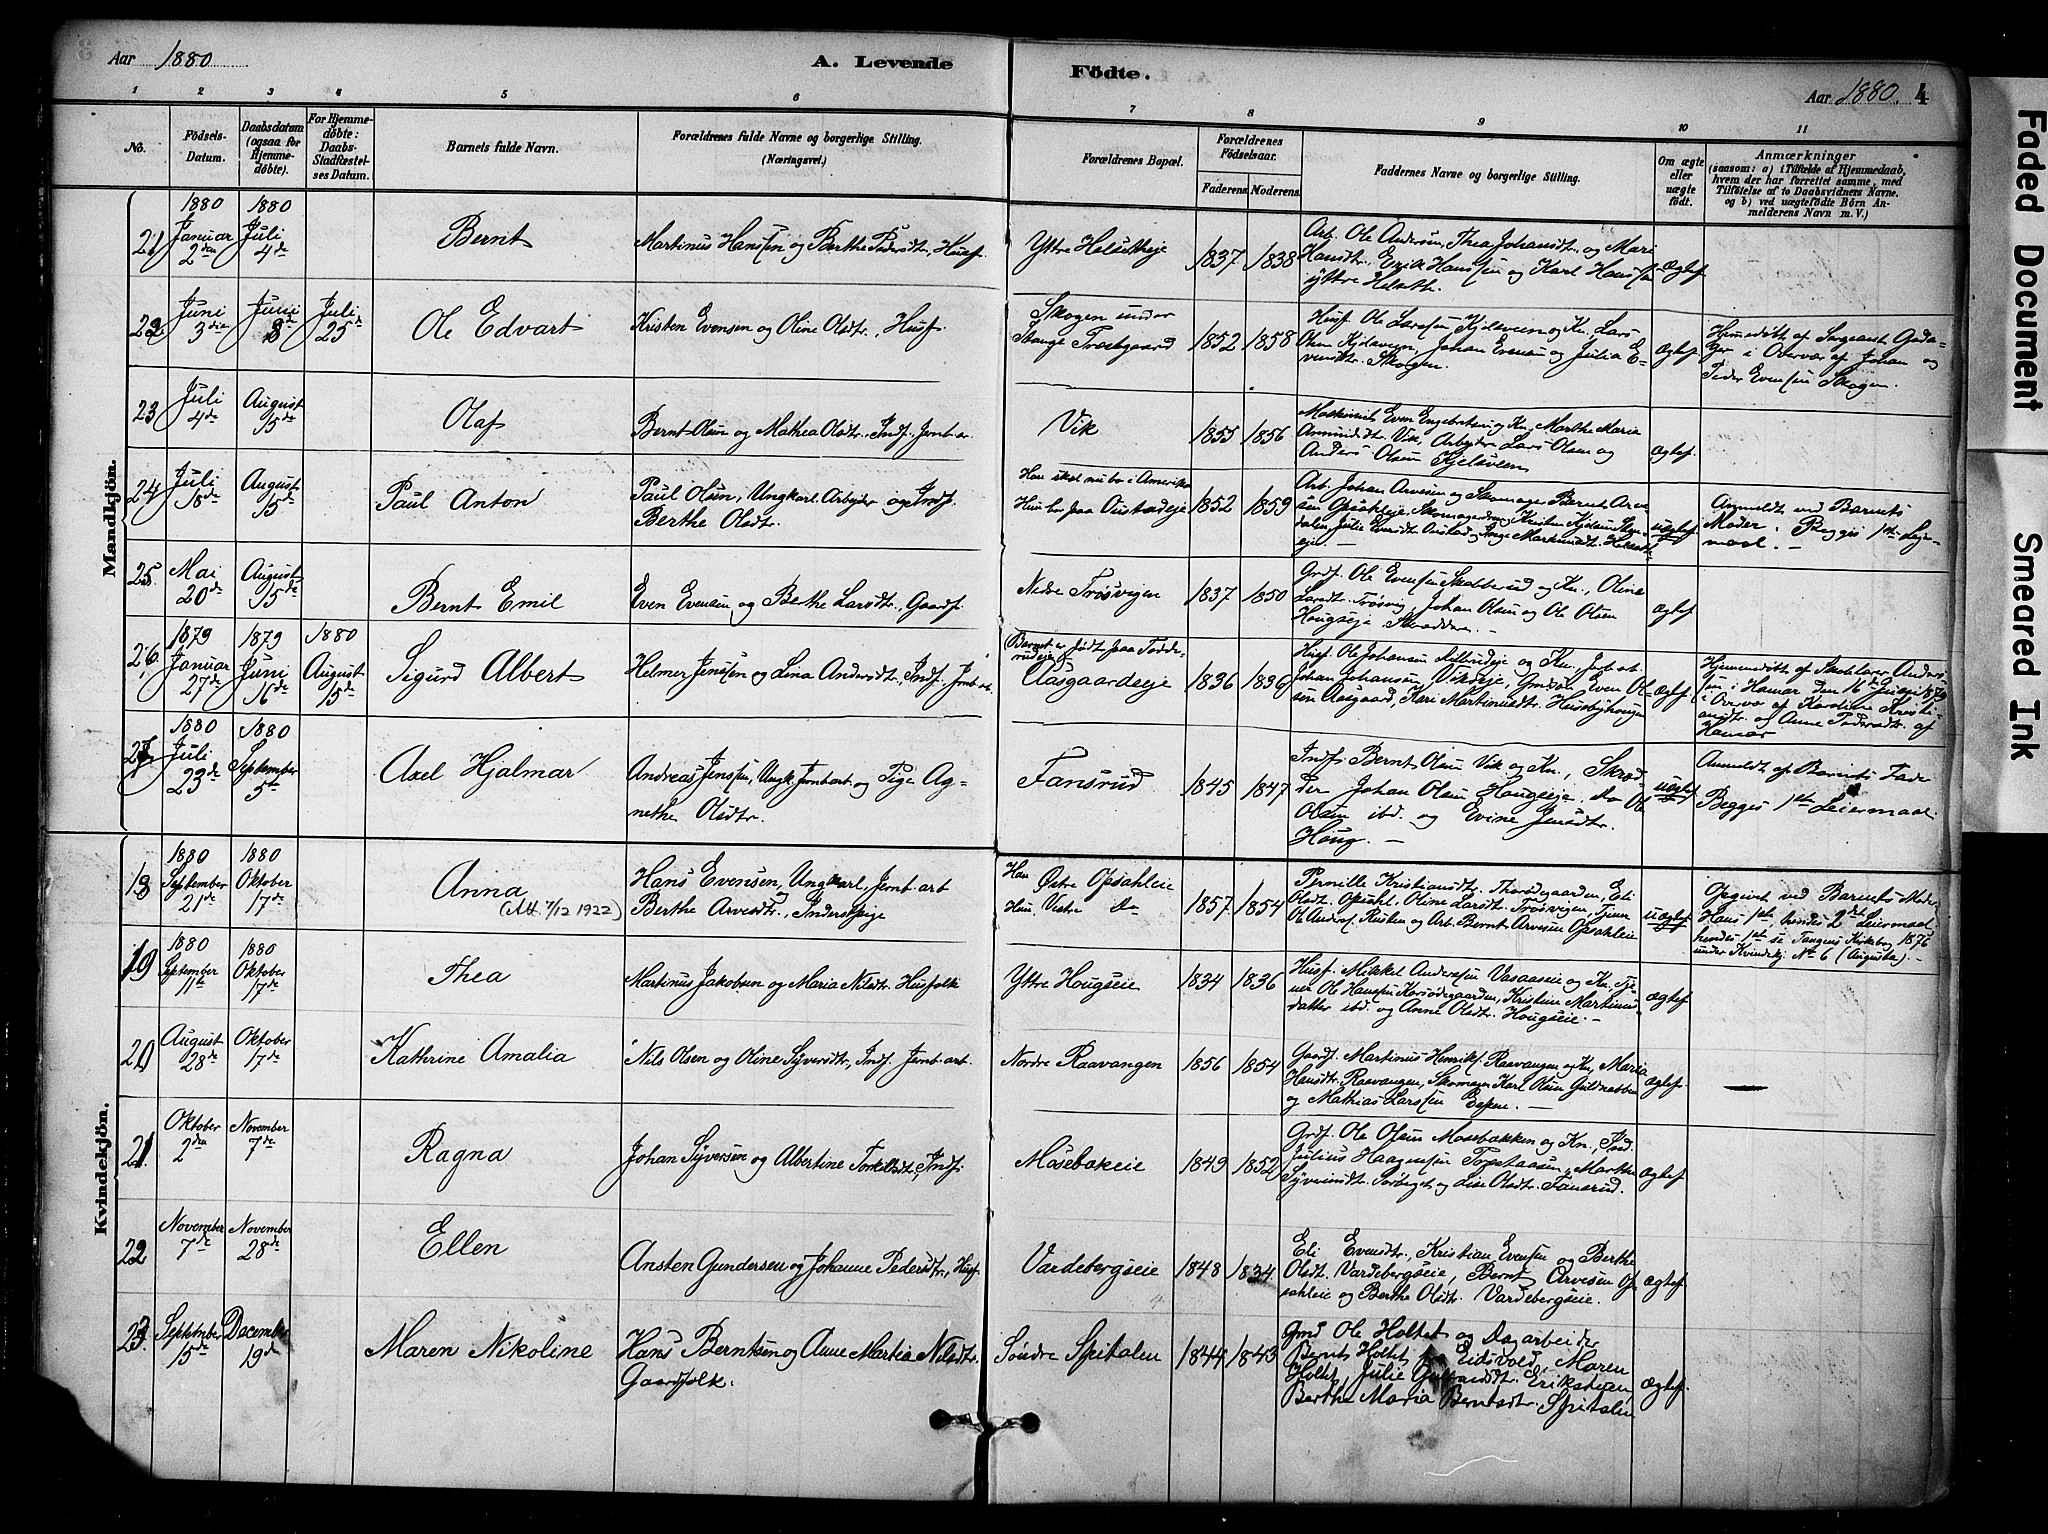 Aar 1880
A. Levende
Födte.
Aar 1880. 4
1 2 3 4 5 6 7 8 9 10 11
No.
Födsels-Datum.
Daabsdatum (ogsaa for Hjemmedøbte).
For Hjemmedøbte: Daabs-Stadfæstelses Datum.
Barnets fulde Navn.
Forældrenes fulde Navne og borgerlige Stilling. (Næringsvei.)
Forældrenes Bopæl.
Forældrenes Födselsaar.
Faderens. Moderens.
Faddernes Navne og borgerlige Stilling.
Om ægte eller uægte födt.
Anmærkninger
(saasom: a) i Tilfælde af Hjemmedaab, hvem der har forrettet samme, med Tilföielse af to Daabsvidners Navne. og b) ved uægtefödte Börn Anmelderens Navn m. V.)
Mandkjön.
21 1880 Januar 2den 1880 Juli 4de
Bernt
Martinus Hanssen og Berthe Pedersdtr., Husf.
Yttre Helsetheje
1837 1838
Arb. Ole Andersen, Thea Johansdtr. og Mari
Hansdtr., Erik Hanssen og Karl Hanssen
yttre Helseth.
Ægtef.
22 Juni 3die Juni 8de Juli 25de
Ole Edvart
Kristen Evensen og Oline Olsdtr., Husf.
Skogen under
Stange Præstgaard
1852 1858
Husf. Ole Larssen Kjelsveen og Kn. Lars
Olsen Kjelsveen, Johan Evensen og Julia E-
vensdtr. Skogen.
Ægtef.
Hjemmedöbt af Sergeant
i Overvær af Johan og
Peder Evensen Skogen.
23 Juli 4de August 15de
Olaf
Bernt Olsen og Mathea Olsdtr. Indf. Jernb.ar.
Vik
1855 1856
Maskinist Even Engebretsen og Kn. Marthe Maria
Amundsdtr. Vik, Arbejder Lars Olsen og
Anders Olsen Kjelsveen
Ægtef.
24 Juli 18de August 15de
Paul Anton
Paul Olsen, Ungkarl Arbejder og Ind.
Berthe Olsdtr.
Han skal nu bo i Amerika
Hun bor paa Oustadeje
1852 1859
Arb. Johan Arvesen og Skomager Bernt Arve-
sen Opsahleje
uægtef.
Anmeldt ved Barnets
Moder. Begges 1ste Lejer-
maal. —
25 Mai 20de August 15de
Bernt Emil
Even Evensen og Berthe Larsdtr., Gaardf.
Nedre Trösvigen
1837 1850
Grdf. Ole Evensen Skabberud og Kn., Oline
Larsdtr. Trösvig, Johan Olsen og Ole Olsen
Hougseje Skræddere. —
Ægtef.
26 1879 Januar 27de 1879 Juni 16de 1880 August 15de
Sigurd Albert
Helmer Jenssen og Lina Andersdtr., Indf. Jernb.arb.
Barnet er födt paa Fodde-
rudeje
Aasgaardeje
1836 1836
Husf. Ole Johansen
Johan Johansen, Vikseje, Gmdsön Even Ol-
sen Aasgaard, Kari Martinusdtr. Husebyhougen
Ægtef.
Hjemmedöbt af Anders-
sen i Hamar den 16de Juni 1879
i Overvær af Karoline Kristi-
ansdtr. og Anne Pedersdtr. af
Hamar
27 1880 Juli 23de 1880 September 5te
Axel Hjalmar
Andreas Jenssen, Ungk. Jernb.arb. og Pige Ag-
nethe Olsdtr.
Fansrud
1845 1847
Indf. Bernt Olsen Vik og Kn., Skræd-
der Johan Olsen Hougseje, Do Ole
Olsen ibd. og Evine Jensdtr.
Houg. —
uægtef.
Anmeldt af Barnets Fader
Begges 1ste Leiermaal.
Kvindekjön.
18 1880 September 21de 1880 Oktober 17de
Anna
(Att. 7/12 1922)
Hans Evensen, Ungkarl, Jernb. arb. og
Berthe Arvesdtr., Inderstpige
Han Østre Opsahleie
Hun, Vestre Do
1857 1854
Pernille Kristiansdtr. Thorödegaarden, Eli
Olsdt. Opsahl, Oline Larsdt. Trösvigen, Tjener
Ole Andersen og Arb. Bernt Arvesen Opsahleie
uægtef.
Opgivet ved Barnets Moder.
Hans 1ste, hendes 2det Leiermaal
hendes 1ste se Tangens Kirkebog 1876
under Kvindekj. No 6 (Augusta). —
19 1880 September 11te 1880 Oktober 17de
Thea
Martinus Jakobsen og Maria Nilsdtr. Husfolk
Yttre Hougseie
1834 1836
Husf. Mikkel Anderssen Vasaaseie og Kn. Tje-
ner Ole Hanssen Korsödegaarden, Kristine Martinus-
datter ibd. og Anne Olsdtr. Hougseie. —
Ægtef.
20 August 28de Oktober 17de
Kathrine Amalia
Nils Olsen og Oline Syversdtr., Indf. Jernb. arb.
Nordre Raavangen
1856 1854
Gaardf. Martinus Henriks. Raavangen og Kn., Maria
Hansdtr. Raavangen, Skomager Karl Olsen Guldnabben
og Mathias Larssen Espen. —
Ægtef.
—
21. Oktober 2den November 7de
Ragna
Johan Syversen og Albertine Torkildsdt., Indf.
Mosebækeie
1849 1852
Grdf. Ole Olsen Mosebækken og Kn., Ind.
Julius Haagensen Marthe
Syversdtr. Torberget og Lise Olsdtr. Fansrud.
Ægtef.
22 November 7de November 28de
Ellen
Ansten Gundersen og Johanne Pedersdtr., Husf.
Vardebergseie
1848 1834
Eli Evensdtr., Kristian Evensen og Berthe
Olsdt. Vardebergseie, Bernt Arvesen Op-
sahleie og Berthe Olsdt. Vardebergseie.
Ægtef.
23. September 15de December 19de
Maren Nikoline
Hans Berntsen og Anne Martia Nilsdtr.
Gaardfolk.
Söndre Spitalen
1844 1843
Gmd Ole Holtet og Dagarbeider
Bernt Holtet fra Eidsvold, Maren
Holtet, Julie Erikstuen,
Berthe Maria Berntsdtr. Spitalen
Ægtef.
Faded Document
Smeared Ink